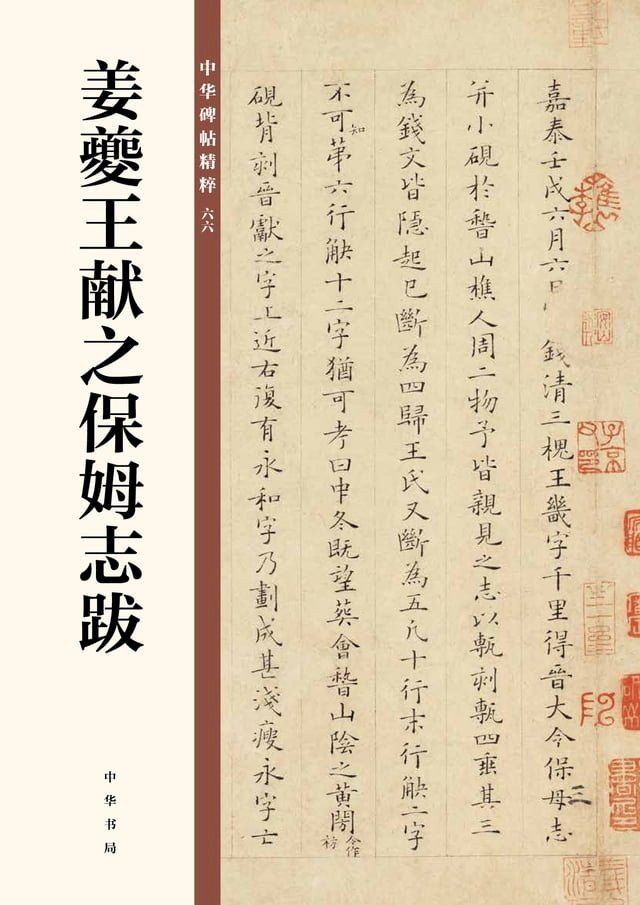 姜夔王献之保姆志跋
中华书局
中华碑帖精粹 六六
嘉泰壬戌六月六日 錢清三槐王畿字千里得晉大令保母志
并小硯於嵇山樵人周二物予皆親見之志以甎刻甎四垂其三
為錢文皆隱起已斷為四歸王氏又斷為五凡十行末行觖二字
不可知第六行觖十二字猶可考曰中冬既望葬會嵇山陰之黃閍今作祊
硯背刻晉獻之字上近右復有永和字乃劃成甚淺瘦永字亡
三
子京